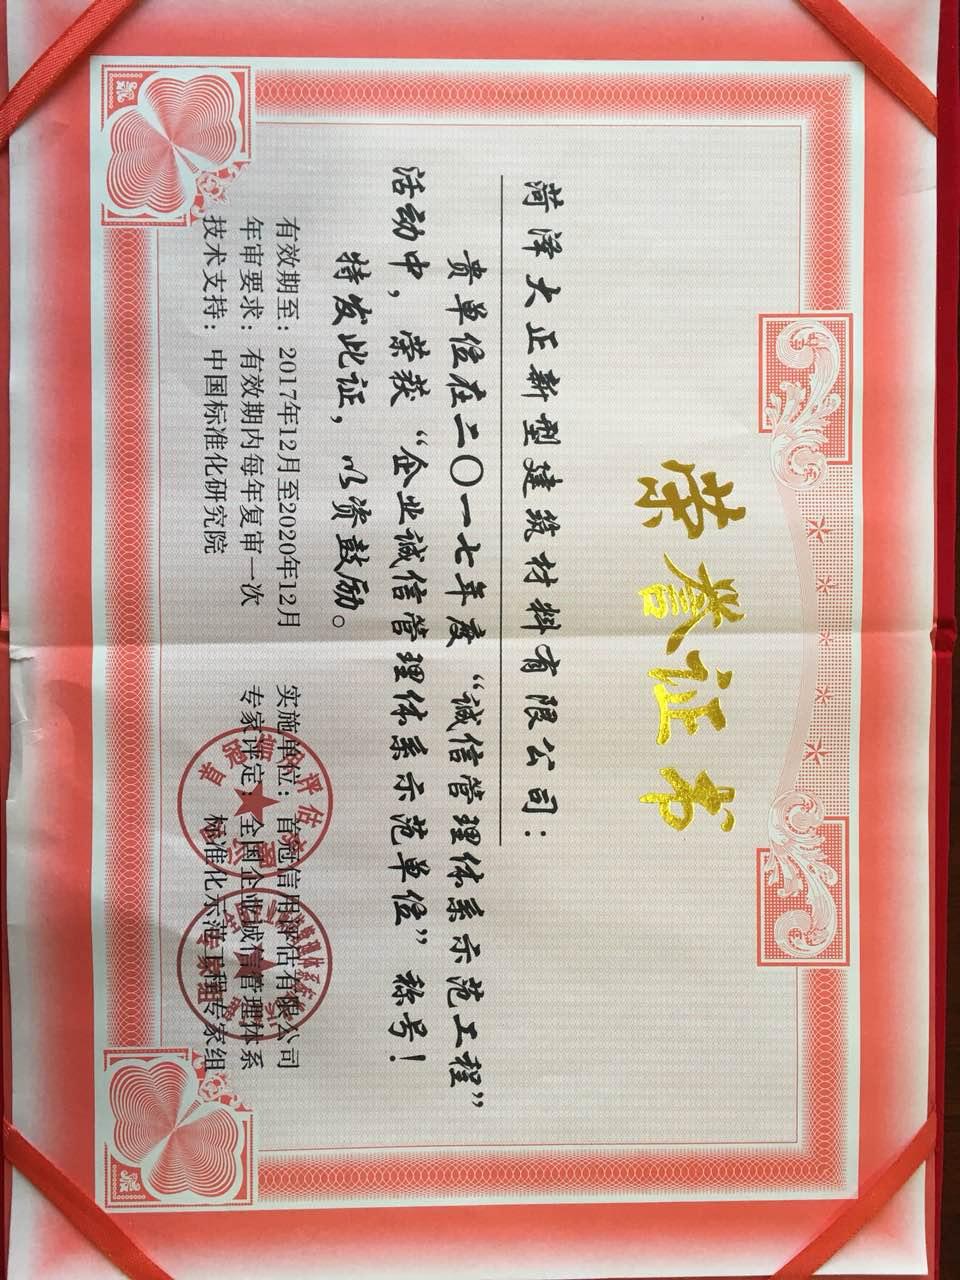 荣誉证书
菏泽大正新型建筑材料有限公司：
贵单位在二〇一七年度“诚信管理体系示范工程”
活动中，荣获“企业诚信管理体系示范单位”称号！
特发此证，以资鼓励。
有效期至：2017年12月至2020年12月
年审要求：有效期内每年复审一次
技术支持：中国标准化研究院
实施单位：首冠信用评估有限公司
专家评定：全国企业诚信管理体系
标准化示范工程专家组